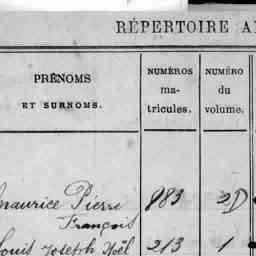 RÉPERTOIRE A
PRÉNOMS
ET SURNOMS.
NUMÉROS
ma-
tricules.
NUMÉRO
du
volume.
Maurice Pierre 883 2D
François
Louis Joseph Noël 213 1